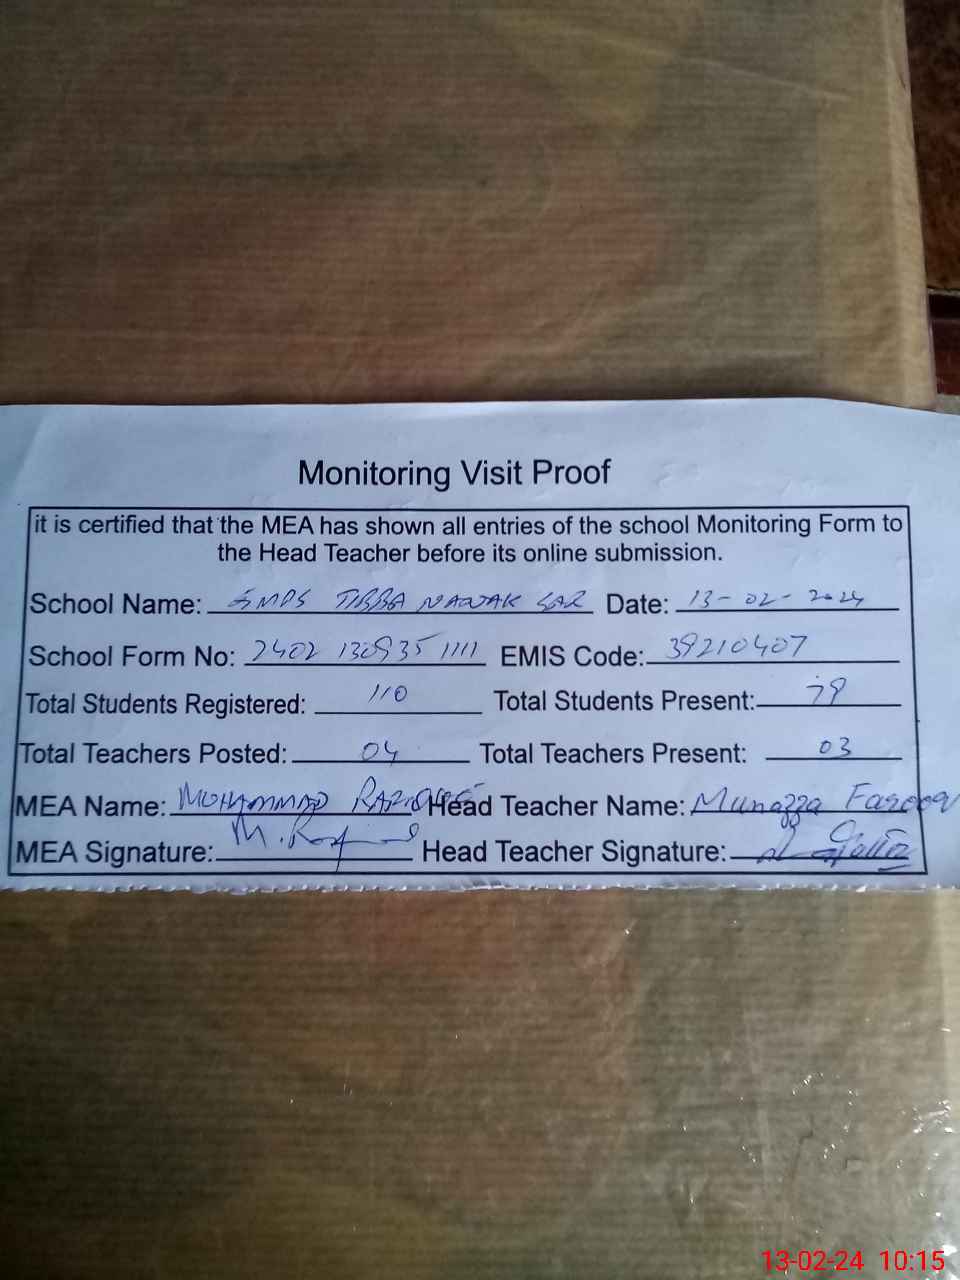 Monitoring Visit Proof
it is certified that the MEA has shown all entries of the school Monitoring Form to
the Head Teacher before its online submission.
School Name: GMPS TIBBA NANAK SAR Date: 13-02-2024
School Form No: 2402 130935 1111 EMIS Code: 39210407
Total Students Registered: 110 Total Students Present:
Total Teachers Posted: 04 Total Teachers Present: 03
MEA Name: MUHAMMAD Head Teacher Name: Munazza Farooq
MEA Signature: Head Teacher Signature:
13-02-24 10:15